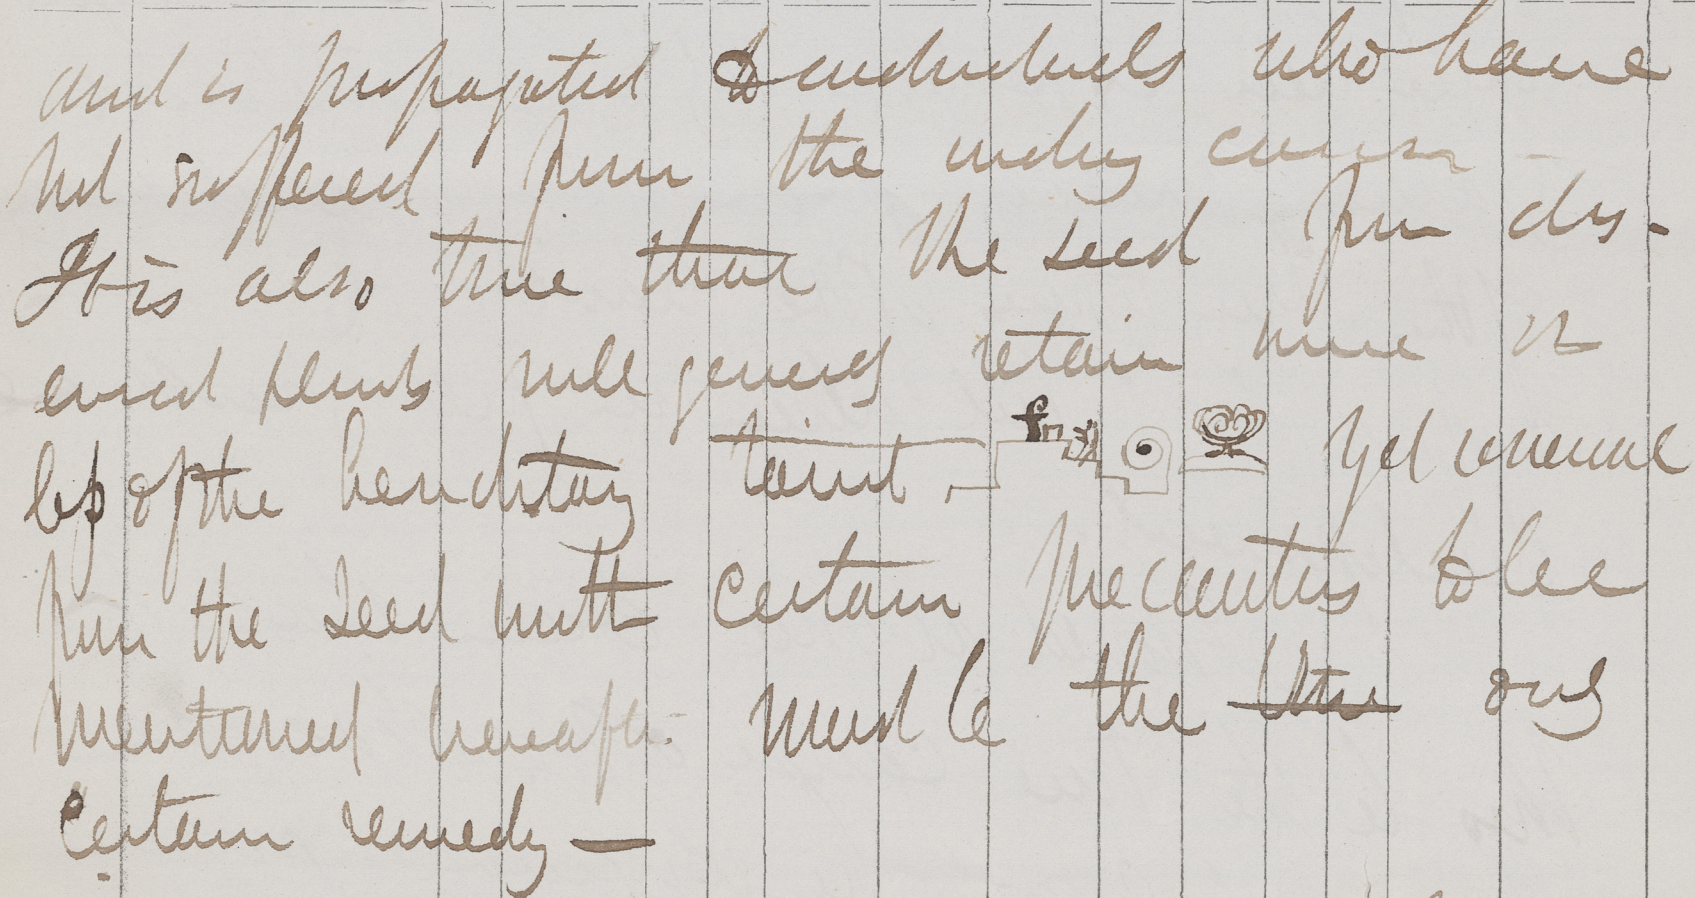 and is propagated to individuals who have
not suffered from the inducing cause —
It is also true that the seed from dis-
eased plants will generally retain more or
less of the hereditary taint. Yet renewal
from the seed with certain precautions to be
mentioned hereafter must be the only
certain remedy —